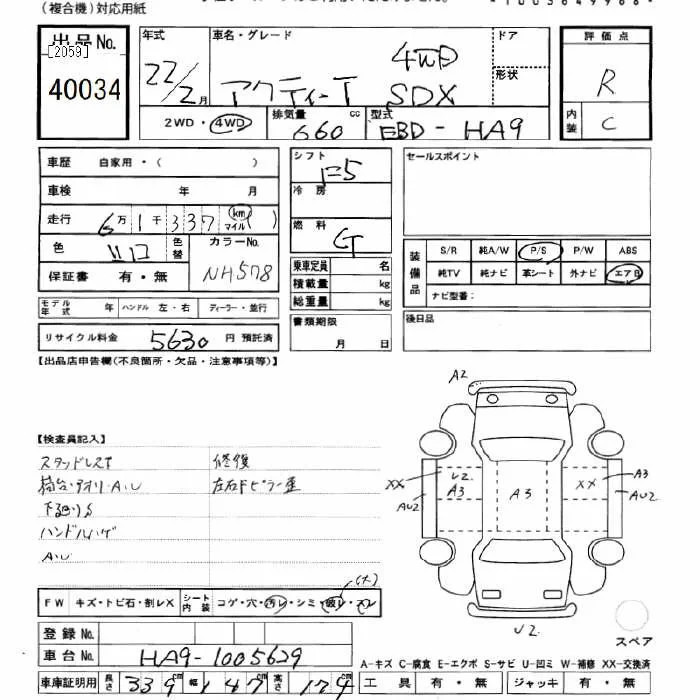 (複合機)対応用紙
出品No.
[2059]
40034
年式
22/2月
車名・グレード
4WD
アクティーT SDX
ドア
形状
評価点
R
内装
C
2WD・4WD
排気量
660
cc
型式
EBD-HA9
車歴
自家用・( )
車検
年 月
走行
6万1千337
km
マイル
( )
色
シロ
色替
カラーNo.
NH578
保証書
有・無
モデル年式
年
ハンドル 左・右
ディーラー・並行
リサイクル料金
5630
円 預託済
シフト
F5
冷房
燃料
G
乗車定員
名
積載量
kg
総重量
kg
書類期限
月 日
セールスポイント
装備品
S/R
純A/W
P/S
P/W
ABS
純TV
純ナビ
革シート
外ナビ
エアB
ナビ型番:
後日品
【出品店申告欄(不良箇所・欠品・注意事項等)】
【検査員記入】
スタッドレスT
荷台・アオリ・A,U
下廻りS
ハンドルハゲ
A,U
修復
左右Fピラー歪
A2
XX
U2
A3
AU2
A3
XX
A3
AU2
U2
スペア
FW
キズ・トビ石・割レX
シート内装
コゲ・穴・汚レ・シミ・破レ・スレ
(大)
登録No.
車台No.
HA9-1005629
車庫証明用
長さ
339
cm
幅
147
cm
高さ
174
cm
A-キズ C-腐食 E-エクボ S-サビ U-凹ミ W-補修 XX-交換済
工具
有・無
ジャッキ
有・無